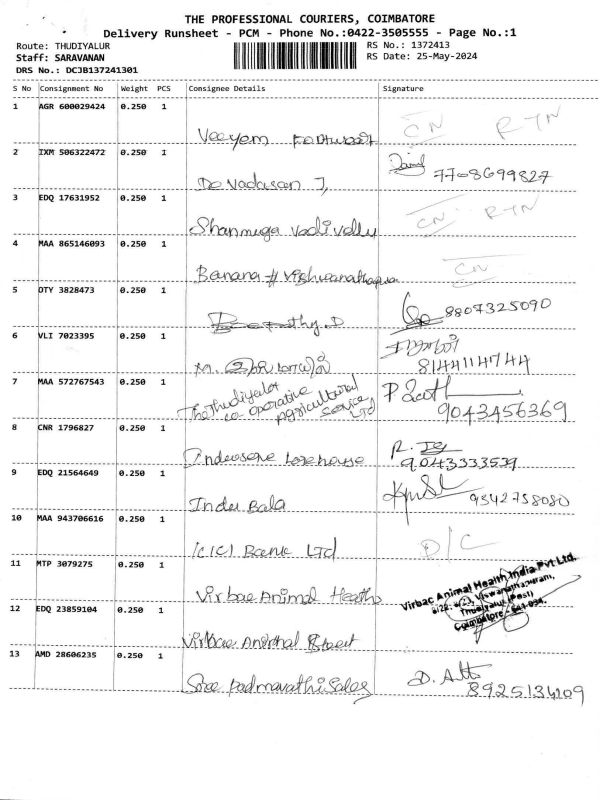 THE PROFESSIONAL COURIERS, COIMBATORE
Delivery Runsheet - PCM - Phone No.:0422-3505555 - Page No.:1
Route: THUDIYALUR RS No.: 1372413
Staff: SARAVANAN RS Date: 25-May-2024
DRS No.: DCJB137241301
S No Consignment No Weight PCS Consignee Details Signature
1 AGR 600029424 0.250 1
Veeyem CN RTN
2 IXM 506322472 0.250 1
Devadasan J, 7708699827
3 EDQ 17631952 0.250 1
Shanmuga Vadivellu CN RTN
4 MAA 865146093 0.250 1
Banana # CN
5 OTY 3828473 0.250 1
8807325090
6 VLI 7023395 0.250 1
M. 8144114744
7 MAA 572767543 0.250 1
The Thudiyalor co operative Agricultural Service Ltd 9043456369
8 CNR 1796827 0.250 1
9043333539
9 EDQ 21564649 0.250 1
Indu Bala 9342758080
10 MAA 943706616 0.250 1
ICICI Bank LTD D/C
11 MTP 3079275 0.250 1
Virbac Animal Health
Virbac Animal Health India Pvt Ltd.
Viswanathapuram,
Coimbatore
12 EDQ 23859104 0.250 1
Virbac Animal
13 AMD 28606235 0.250 1
Sree Padmavathi Sales 8925134209